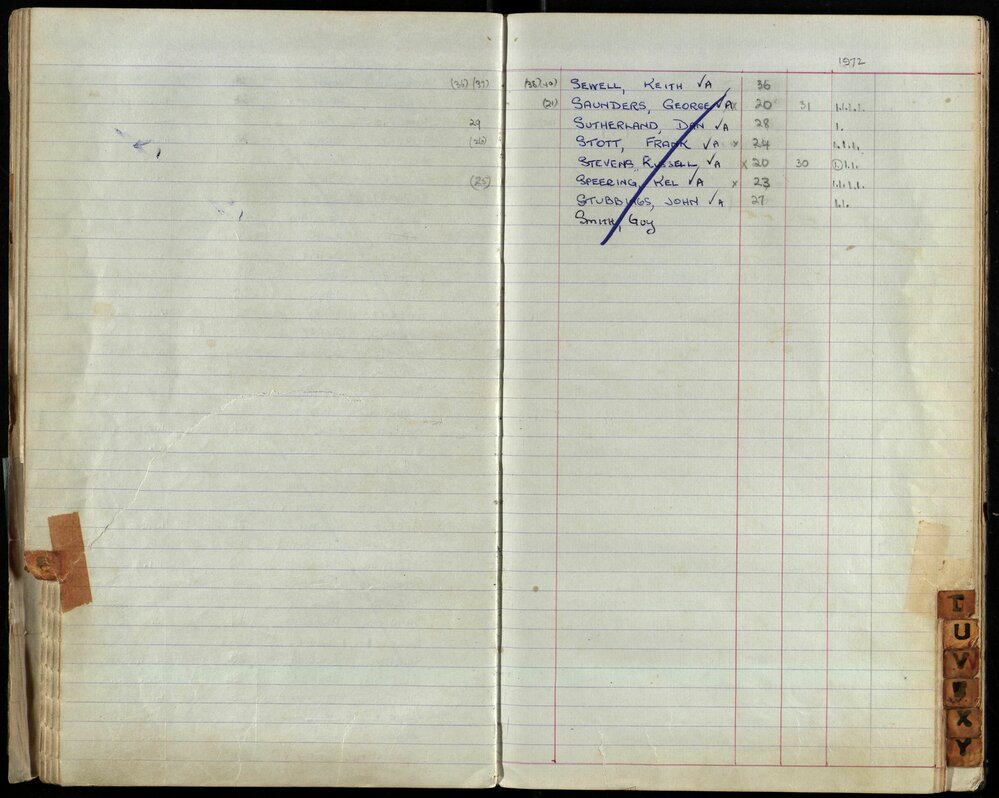 1972
(36) (37) (38) (40) SEWELL, KEITH √A 36
(21) SAUNDERS, GEORGE √A x 20 31 1.1.1.1.
29 SUTHERLAND, DAN √A 28 1.
(26) STOTT, FRANK √A x 24 1.1.1.1.
STEVENS, RUSSELL √A x 20 30 1.1.1.
(25) SPEERING, KEL √A x 23 1.1.1.1.
STUBBINGS, JOHN √A 27 1.1.
SMITH, Guy
T
U
V
X
Y